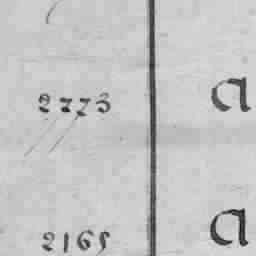 2773 a
2165 a